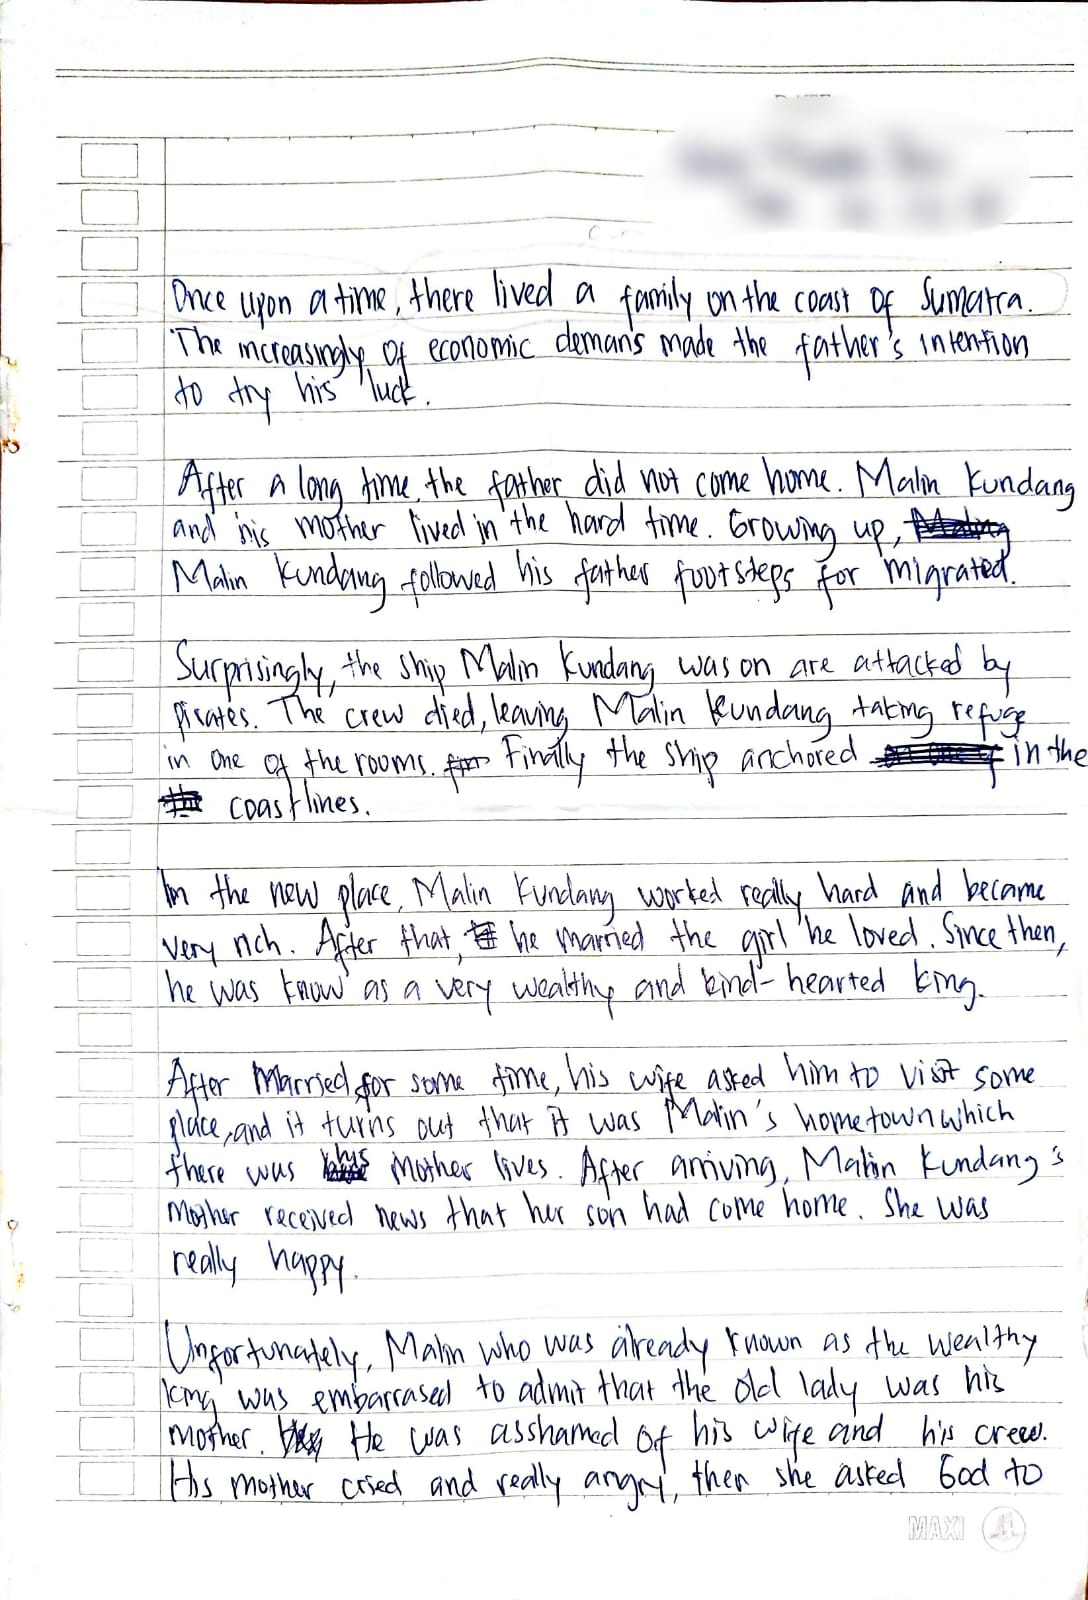 Once upon a time, there lived a family on the coast of Sumatra.
The increasingly of economic demans made the father's intention
to try his luck.
After a long time, the father did not come home. Malin Kundang
and his mother lived in the hard time. Growing up,
Malin Kundang followed his father footsteps for migrated.
Surprisingly, the ship Malin Kundang was on are attacked by
pirates. The crew died, leaving Malin Kundang taking refuge
in one of the rooms. Finally the ship anchored in the
coastlines.
In the new place, Malin Kundang worked really hard and became
very rich. After that, he married the girl he loved. Since then,
he was know as a very wealthy and kind-hearted king.
After Married for some time, his wife asked him to visit some
place, and it turns out that it was Malin's hometown which
there was his mother lives. After arriving, Malin Kundang's
mother received news that her son had come home. She was
really happy.
Unfortunately, Malin who was already known as the wealthy
king was embarrased to admit that the old lady was his
mother. He was asshamed of his wife and his crew.
His mother cried and really angry, then she asked God to
MAXI